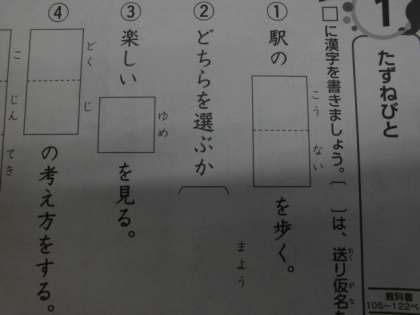 1
たずねびと
教科書
105〜122ペ
□に漢字を書きましょう。〔 〕は、送り仮名も
おく がな
① 駅の
こう ない
を歩く。
② どちらを選ぶか
まよう
③ 楽しい
ゆめ
を見る。
④
どく じ
の考え方をする。
こ じん てき